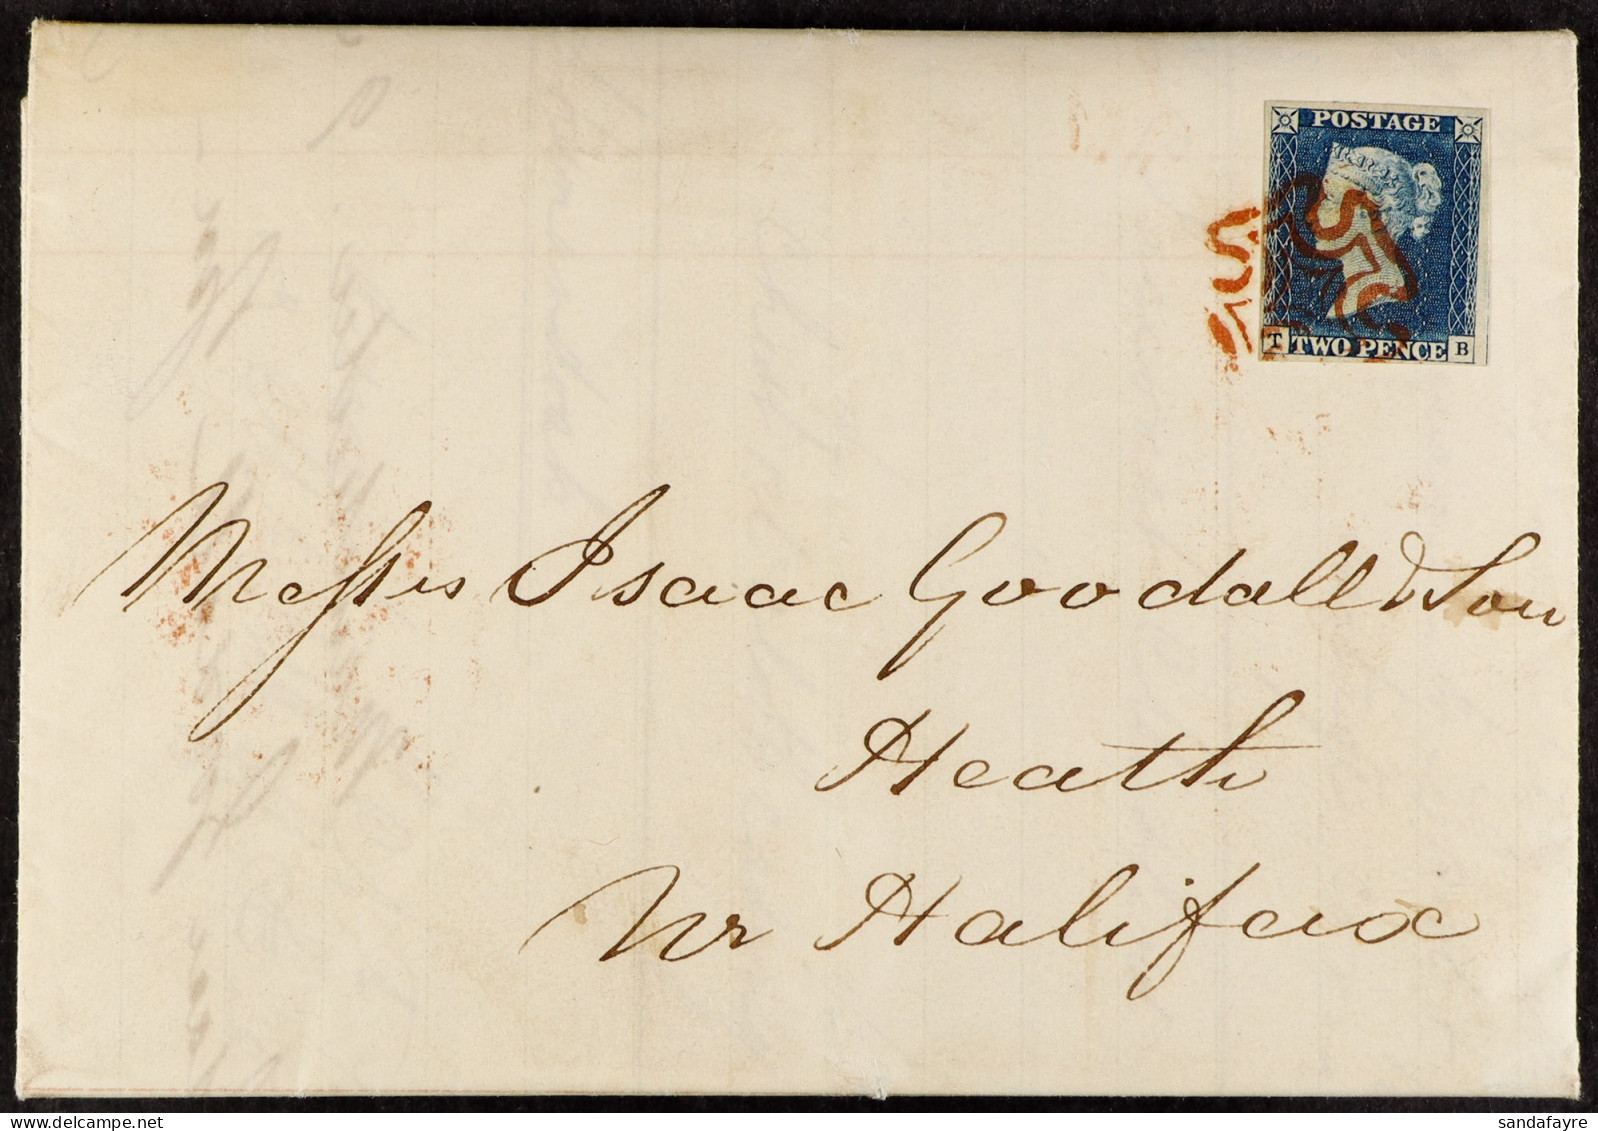 POSTAGE
T TWO PENCE B
Messrs Isaac Goodall & Son
Heath
Nr Halifax
sandafayre